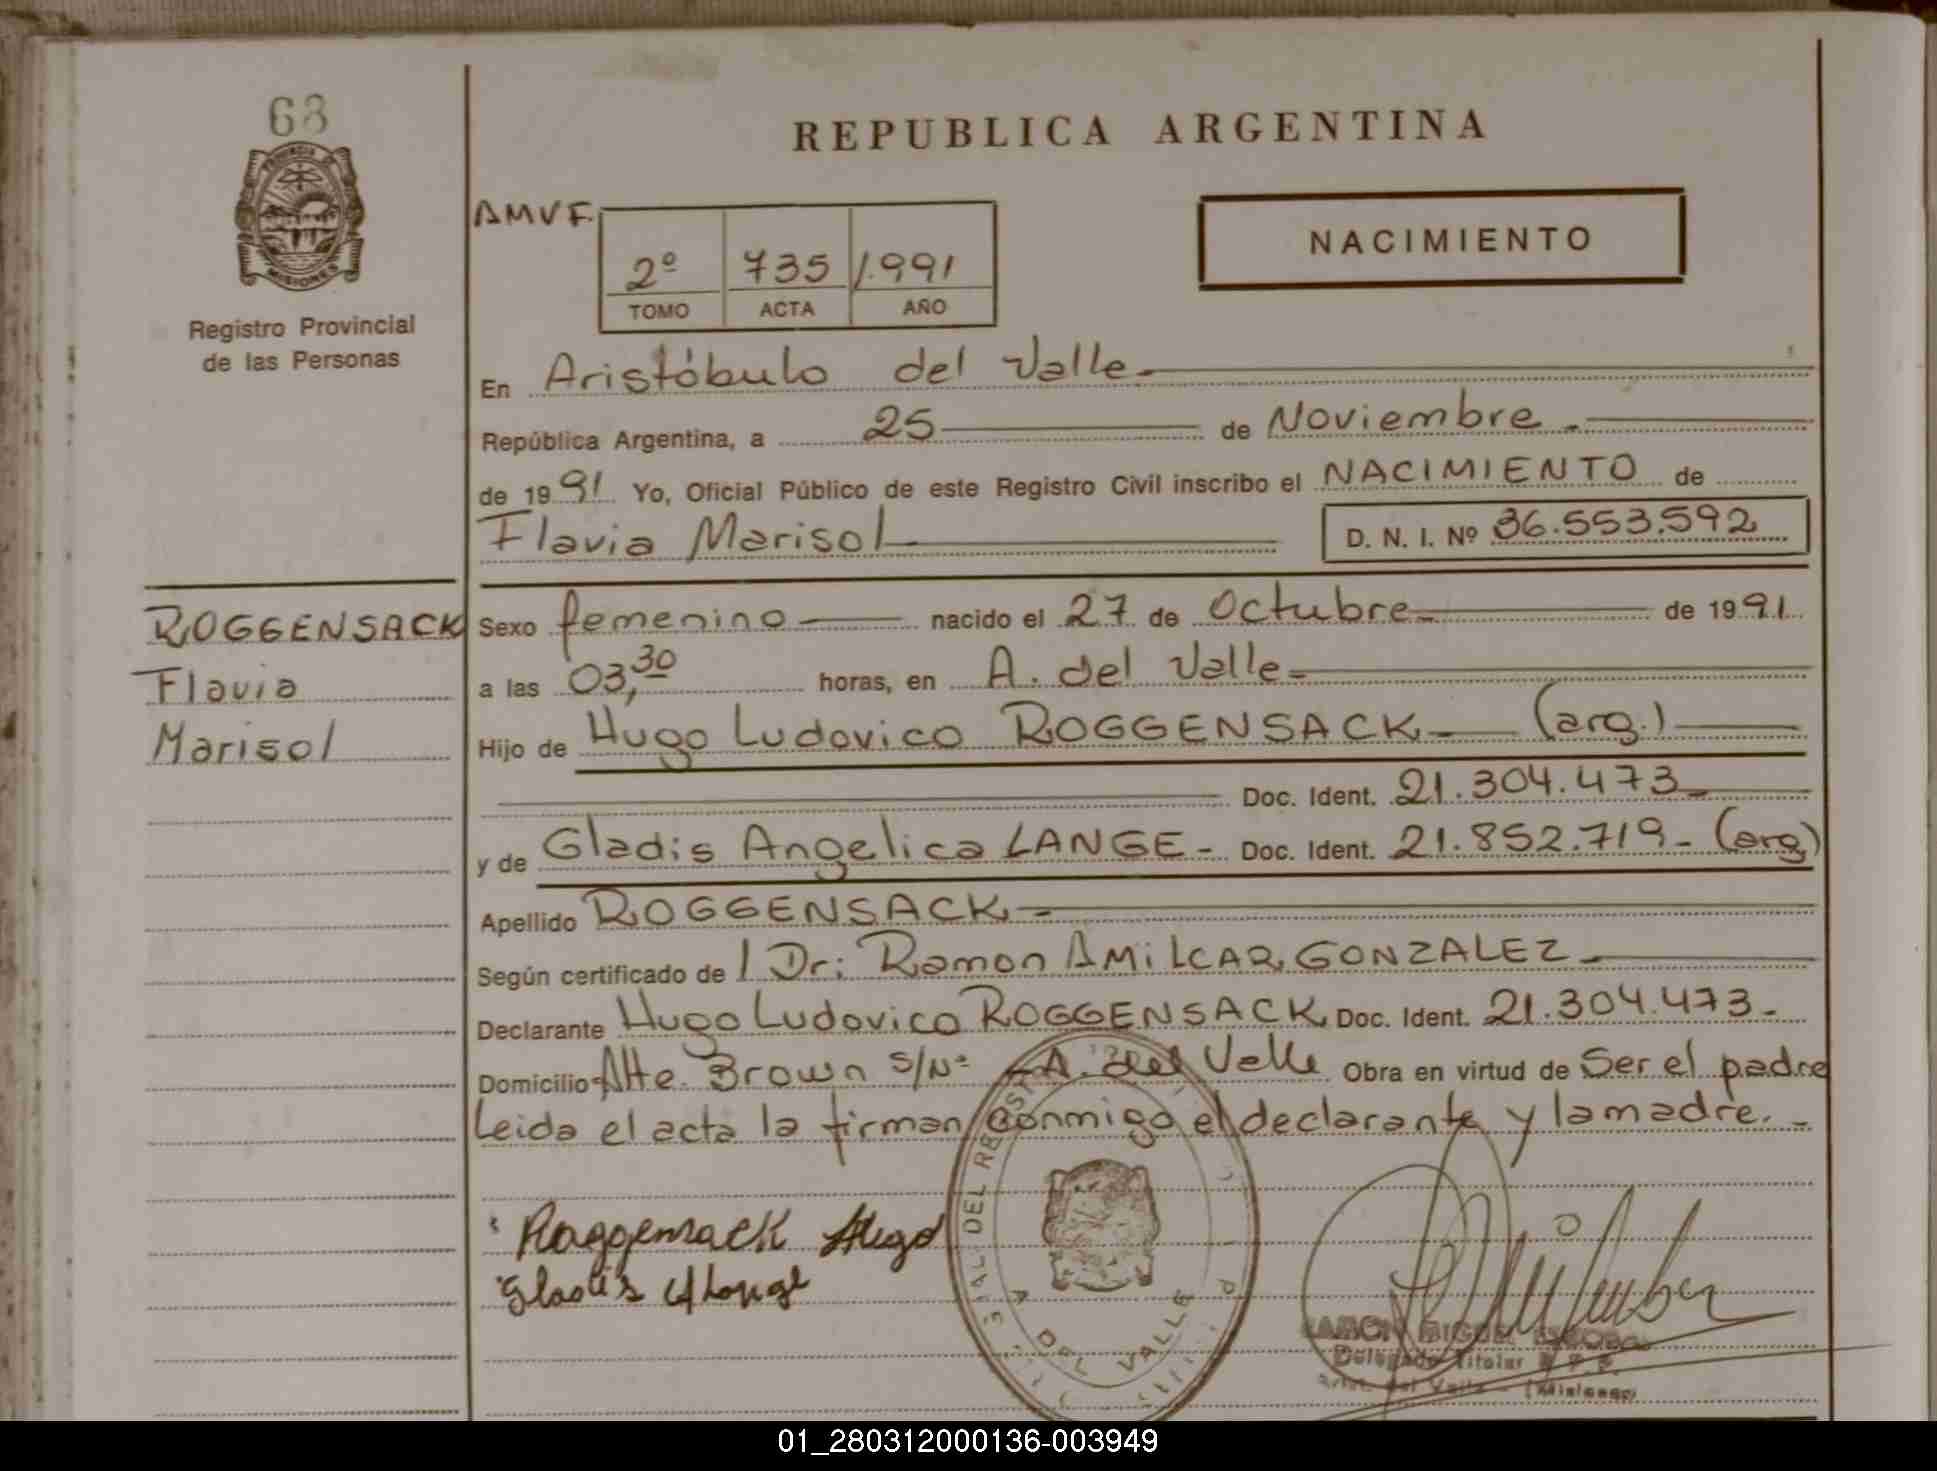 63
PROVINCIA DE
MISIONES
Registro Provincial
de las Personas
REPUBLICA ARGENTINA
AMVF.
2º 735 1.991
TOMO ACTA AÑO
NACIMIENTO
En Aristóbulo del Valle
República Argentina, a 25 de Noviembre.
de 1991 Yo, Oficial Público de este Registro Civil inscribo el NACIMIENTO de
Flavia Marisol D. N. I. Nº 36.553.592
ROGGENSACK
Flavia
Marisol
Sexo femenino nacido el 27 de Octubre de 1991
a las 03,30 horas, en A. del Valle
Hijo de Hugo Ludovico ROGGENSACK (arg.)
Doc. Ident. 21.304.473
y de Gladis Angelica LANGE - Doc. Ident. 21.852.719 - (arg)
Apellido ROGGENSACK
Según certificado de l Dr: Ramon AMILCAR GONZALEZ
Declarante Hugo Ludovico ROGGENSACK Doc. Ident. 21.304.473 -
Domicilio Alte. Brown s/Nº - A. del Valle Obra en virtud de Ser el padre
Leida el acta la firman conmigo el declarante y la madre. -
Roggensack Hugo
Gladis A Lange
DEL VALLE
RAMON MIGUEL
Delegado Titular R. P. P.
Arist. del Valle - (Misiones)
01_280312000136-003949